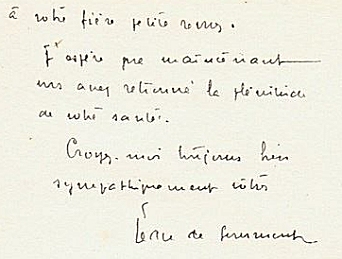 à votre fière petite revue.
J'espère que maintenant
vous avez retrouvé la plénitude
de votre santé.
Croyez-moi toujours bien
sympathiquement vôtre
de